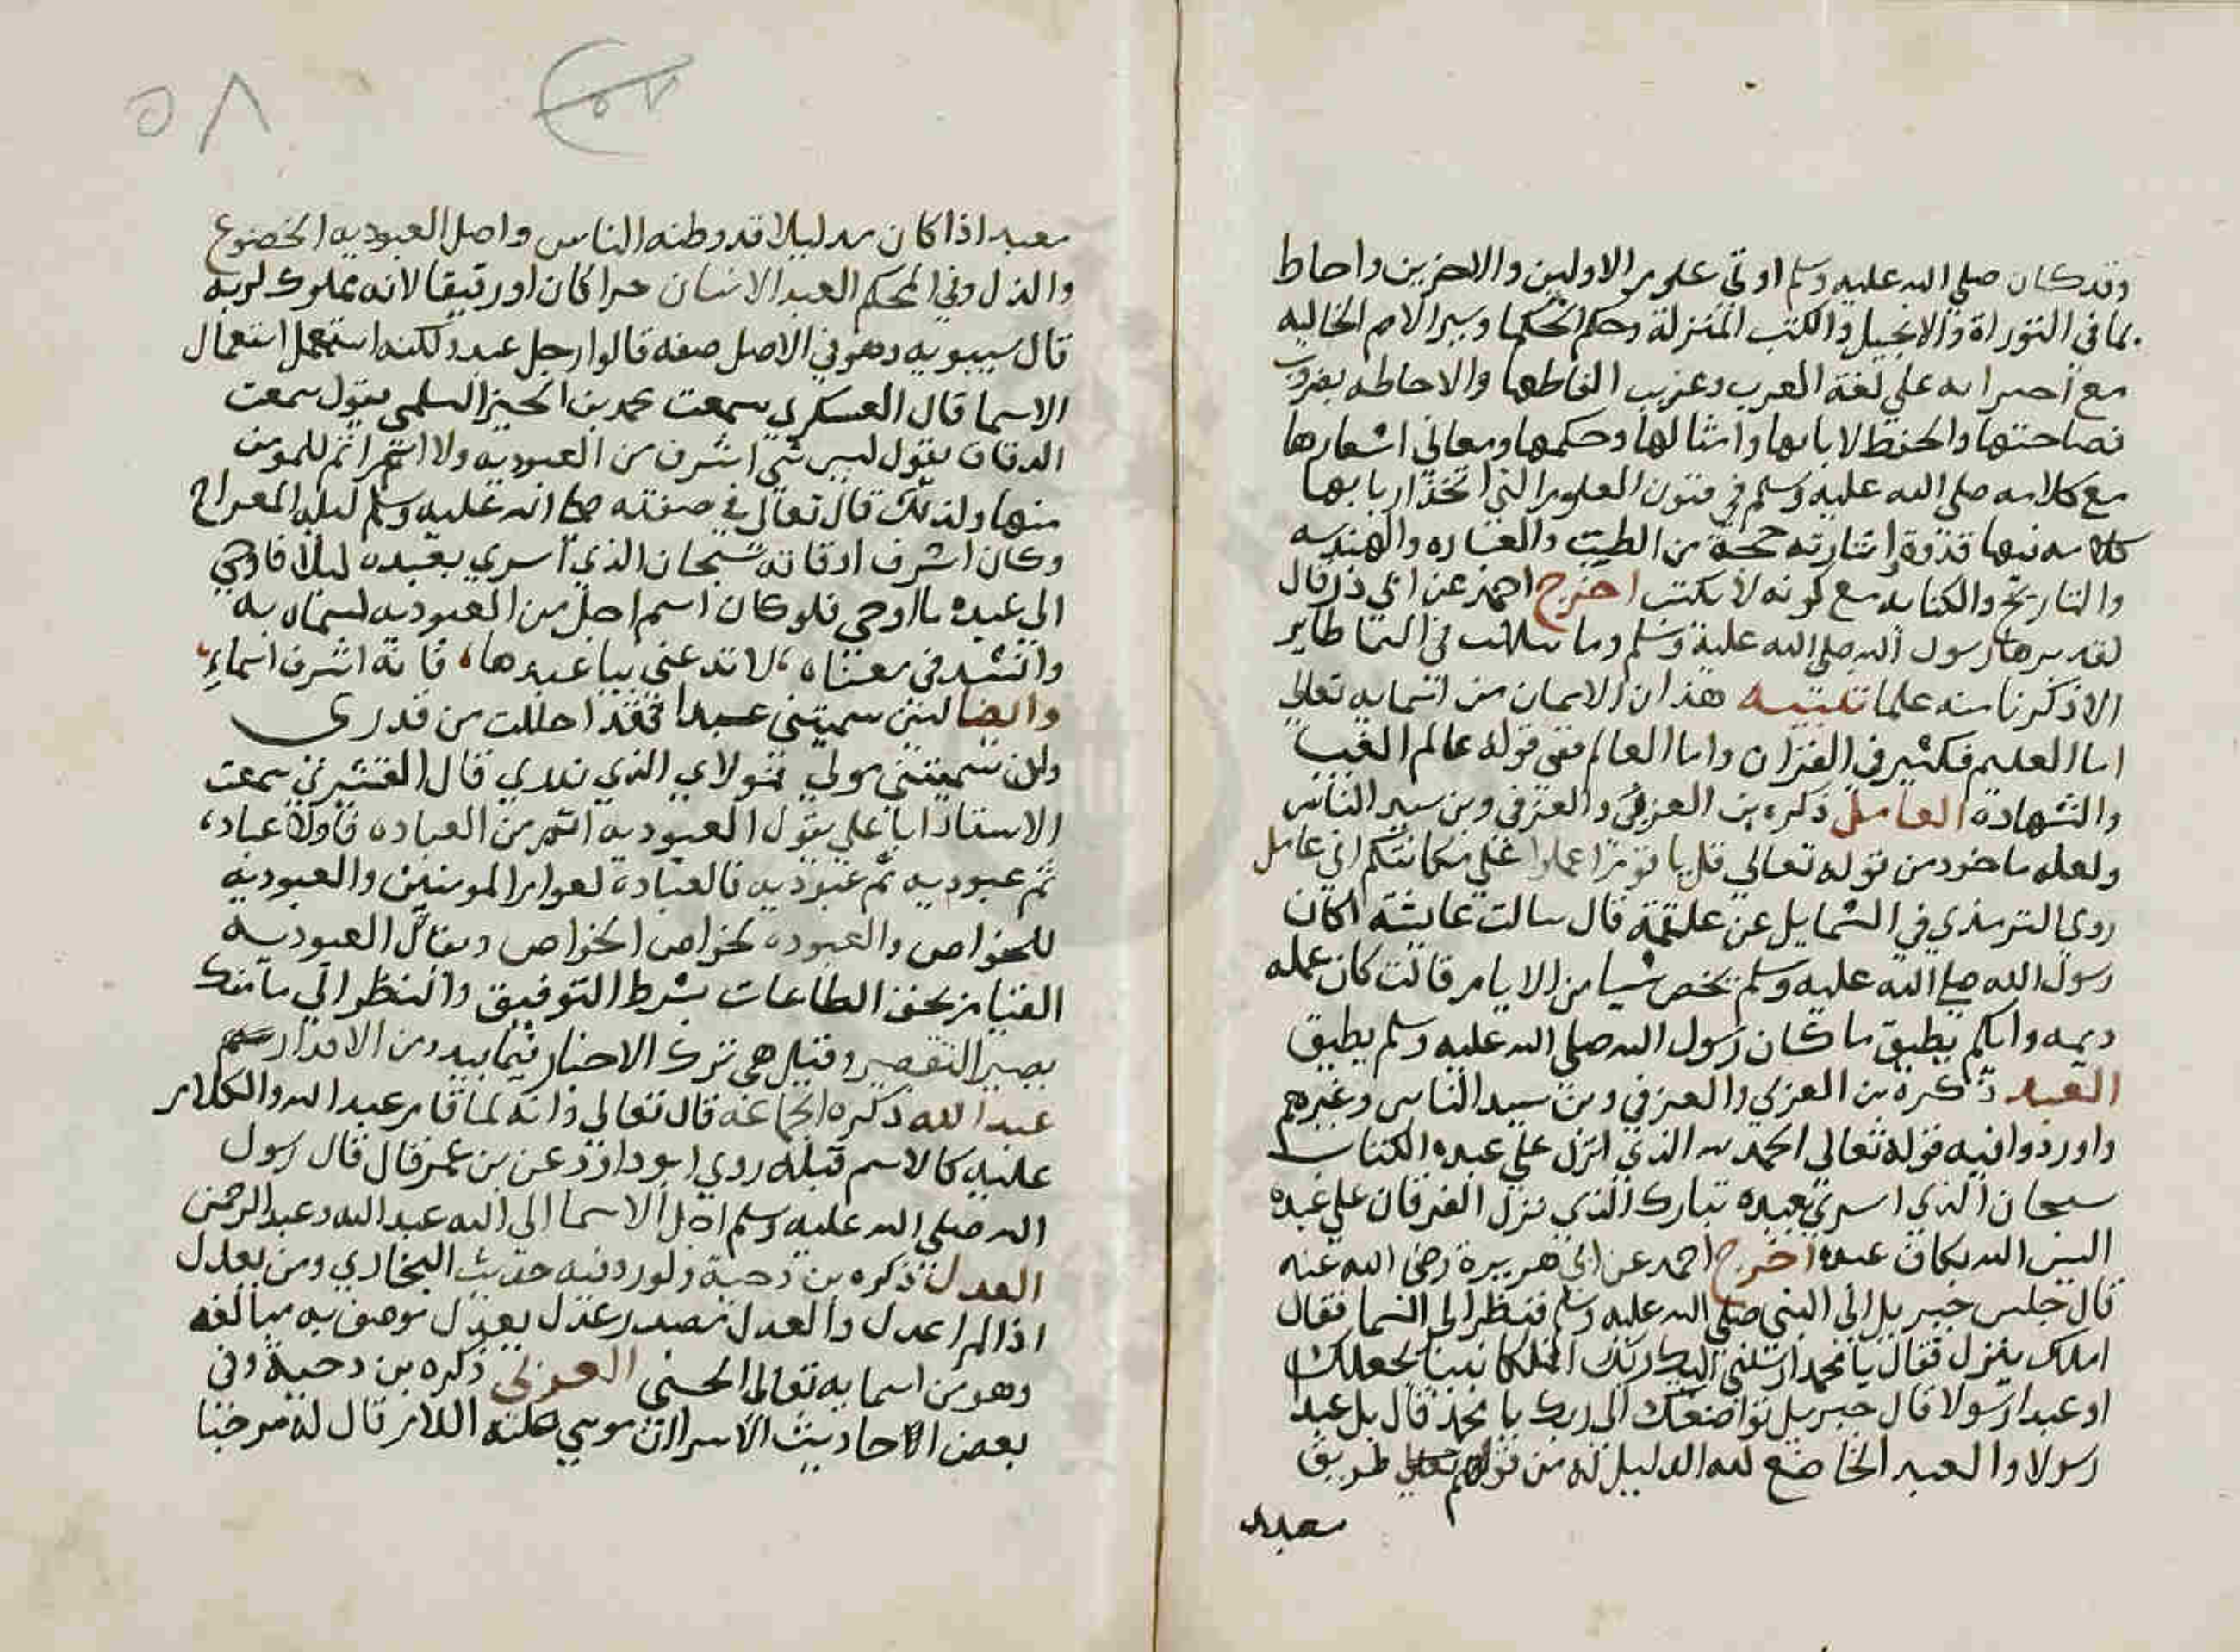 وقد كان صلي الله عليه وسلم اوتي علوم الاولين والاخرين واحاط
بما في التوراة والانجيل والكتب المنزلة وحكم الحكما وسير الامم الخاليه
مع احتوايه علي لغة العرب وغريب الفاظها والاحاطه بضروب
فصاحتها والحفظ لايامها وامثالها وحكمها ومعاني اشعارها
مع كلامه صلي الله عليه وسلم في فنون العلوم التي اتخذ اربابها
كلامه فيها قدوة واشارته حجة من الطب والعباره والهندسه
والتاريخ والكتابه مع كونه لا يكتب اخرج احمد عن ابي ذر قال
لقد رسول الله صلي الله عليه وسلم وما في السما طاير
الا ذكرنا منه علما تنبيه هذان الاسمان من اسمايه تعالي
اما العليم فكثير في القران واما العالم ففي قوله عالم الغيب
والشهادة العامل ذكره بن العربي والعزفي وبن سيد الناس
ولعله ماخوذ من قوله تعالي قل يا قوم اعملوا علي مكانتكم اني عامل
روي الترمذي في الشمايل عن علقمة قال سالت عايشة اكان
رسول الله صلي الله عليه وسلم يخص شيا من الايام قالت كان عمله
ديمه وايكم يطيق ما كان رسول الله صلي الله عليه وسلم يطيق
العبد ذكره بن العربي والعزفي وبن سيد الناس وغيرهم
واوردوا فيه قوله تعالي الحمد لله الذي انزل علي عبده الكتاب
سبحان الذي اسري بعبده تبارك الذي نزل الفرقان علي عبده
اليس الله بكاف عبده اخرج احمد عن ابي هريرة رضي الله عنه
قال جلس جبريل الي النبي صلي الله عليه وسلم فنظر الي السما فقال
املك ينزل فقال يا محمد ارسلني اليك ربك املكا نبيا يجعلك
او عبدا رسولا قال جبريل تواضع الي ربك يا محمد قال بل عبدا
رسولا والعبد الخاضع لله الدليل له من قولهم طريق
معبد
٥٨
معبد اذا كان قد وطنه الناس واصل العبوديه الخضوع
والذل وفي المحكم العبد الانسان حرا كان او رقيقا لانه مملوك لربه
قال سيبويه وهو في الاصل صفه قالوا رجل عبد ولكنه استعمل استعمال
الاسما قال العسكري سمعت محمد بن الحسين السلمي يقول سمعت
الدقاق يقول ليس شي اشرف من العبوديه ولا اسم اتم للمومن
منها ولذلك قال تعالي في صفته صلي الله عليه وسلم ليله المعراج
وكان اشرف اوقاته سبحان الذي اسري بعبده ليلا فاوحي
الي عبده ما اوحي فلو كان اسم اجل من العبوديه لسماه به
وانشد في معناه، لا تدعني بيا عبدها، فانه اشرف اسماءِ
وايضا لين سميتني عبدا فقد احللت من قدري
ولين سميتني مولي فمولاي الذي يدري قال القشيري سمعت
الاستاذ ابا علي يقول العبوديه اتم من العباده فاولا عباده
ثم عبوديه ثم عبوديه فالعبادة لعوام المومنين والعبودية
للخواص والعبوده لخواص الخواص ويقال العبوديه
القيام بحق الطاعات بشرط التوفيق والنظر الي ما منك
بعين التقصير وقيل هي ترك الاختيار فيما يبدو من الاقدار
عبد الله ذكره الجماعة قال تعالي وانه لما قام عبد الله والكلام
عليه كالاسم قبله روي ابو داود عن بن عمر قال قال رسول
الله صلي الله عليه وسلم احل الاسما الي الله عبد الله وعبد الرحمن
العدل ذكره بن دحية واورد فيه حديث البخاري ومن يعدل
اذا لم اعدل والعدل مصدر عدل يعدل يوصف به مبالغه
وهو من اسمايه تعالي الحسني العربي ذكره بن دحية وفي
بعض الاحاديث الاسرا ان موسي عليه السلام قال له مرحبا